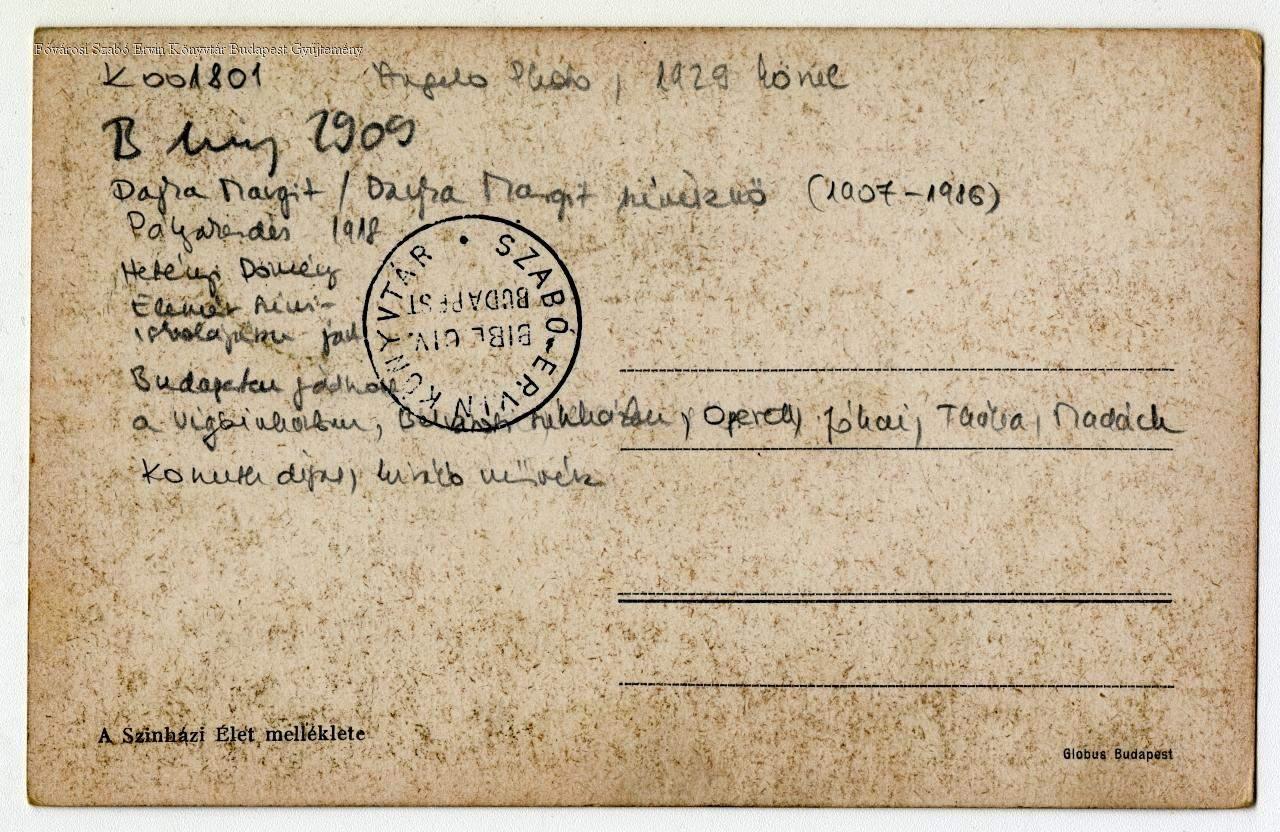 Fővárosi Szabó Ervin Könyvtár Budapest Gyűjtemény
K 001801 Angelo Photo, 1929 körül
B 1909
Dajka Margit / Dayka Margit színésznő (1907-1986)
Pályakezdés 1918
Hetényi
Elemér színi-
iskolájában
Budapesten
a Vígszínházban, Operett, Jókai, Thália, Madách
Kossuth díjas, kiváló művész
SZABÓ ERVIN KÖNYVTÁR
BIBL. CIV.
BUDAPEST
A Szinházi Élet melléklete
Globus Budapest